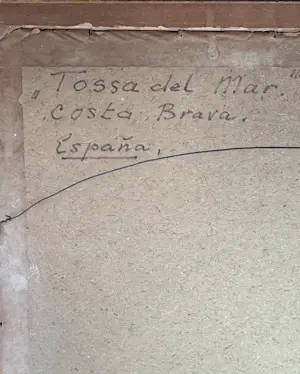 „Tossa del Mar."
Costa Brava.
España.